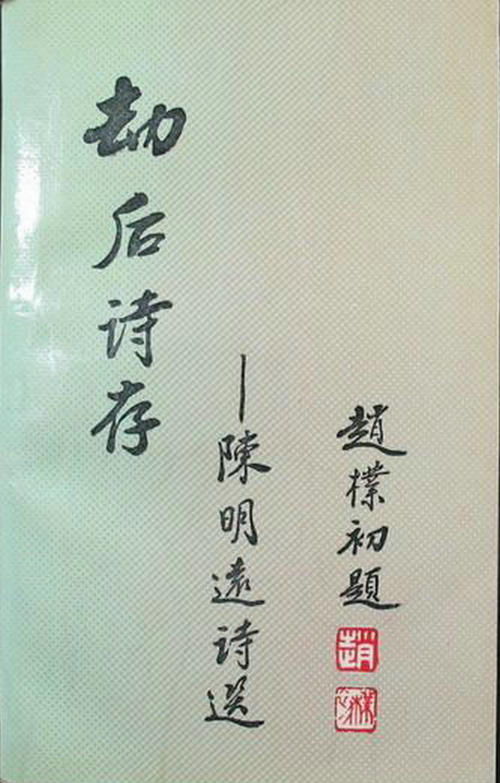 劫后诗存
—陳明遠诗选
趙樸初題
趙